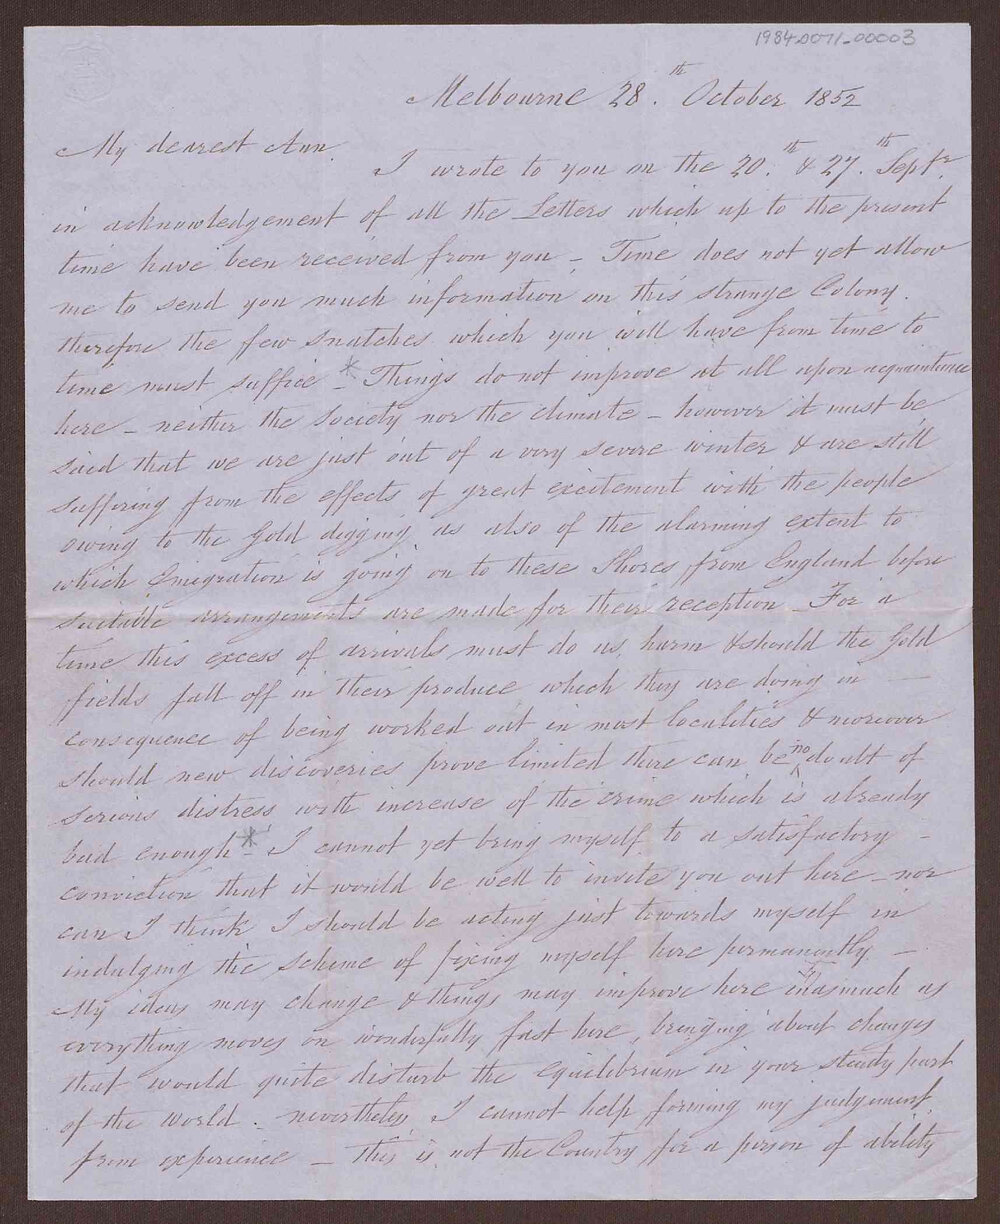 1984.0071_00003
Melbourne 28.th October 1852
My dearest Ann
I wrote to you on the 20.th & 27.th Septr.
in acknowledgement of all the Letters which up to the present
time have been received from you _ Time does not yet allow
me to send you much information on this strange Colony.
therefore the few snatches which you will have from time to
time must suffice _ * Things do not improve at all upon acquaintance
here _ neither the Society nor the climate _ however it must be
said that we are just out of a very severe winter & are still
suffering from the effects of great excitement with the people
owing to the Gold digging, as also of the alarming extent to
which Emigration is going on to these Shores from England before
suitable arrangements are made for their reception _ For a
time this excess of arrivals must do us harm & should the Gold
fields fall off in their produce which they are doing in __
consequence of being worked out in most localities & moreover
should new discoveries prove limited there can be no doubt of
serious distress with increase of the crime which is already
bad enough * _ I cannot yet bring myself to a satisfactory _
conviction that it would be well to invite you out here _ nor
can I think I should be acting just towards myself in
indulging the scheme of fixing myself here permanently _
My ideas may change & things may improve here inasmuch as
everything moves on wonderfully fast here, bringing about changes
that would quite disturb the equilibrium in your steady part
of the world. nevertheless, I cannot help forming my judgement
from experience _ this is not the Country for a person of ability